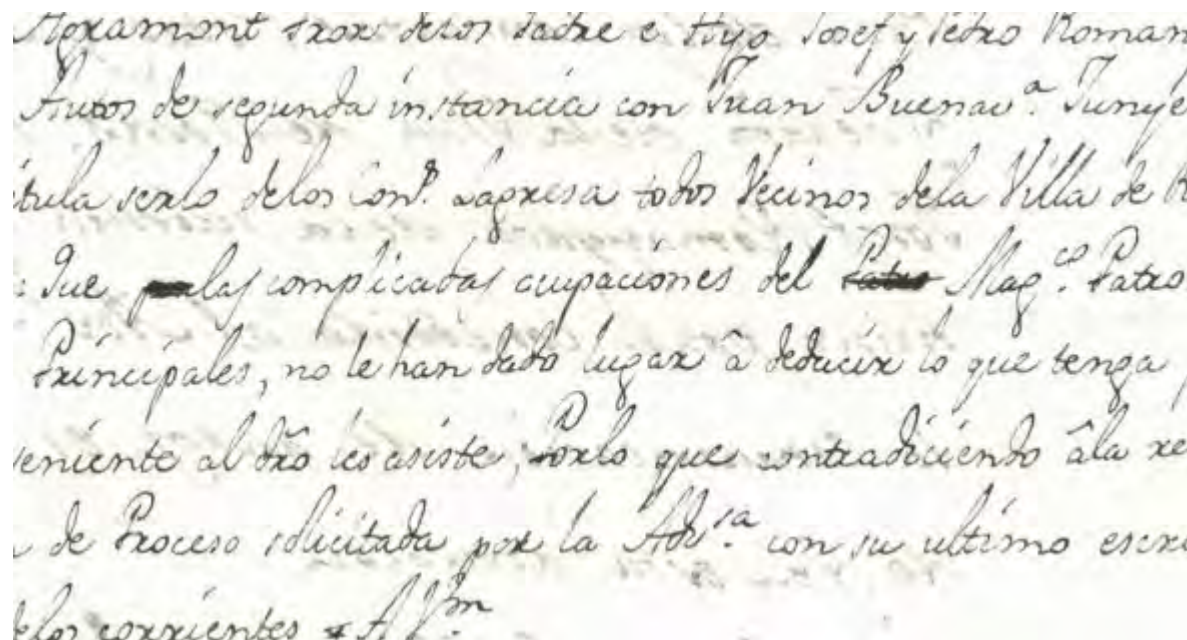 Agramont Pror. delos Padre e Hijo Josef y Pedro Roman
Autos de segunda instancia con Juan Buenav.ª Junye
titula serlo delos Con.s Lagresa todos Vecinos dela Villa de
Que las complicadas ocupaciones del Patro Mag.co Patro
Principales, no le han dado lugar â deducir lo que tenga
veniente al dro̅ les asiste; Porlo que contradiciendo âla re
de Proceso solicitada por la Adv.sa con su ultimo escri
delos corrientes A V.m